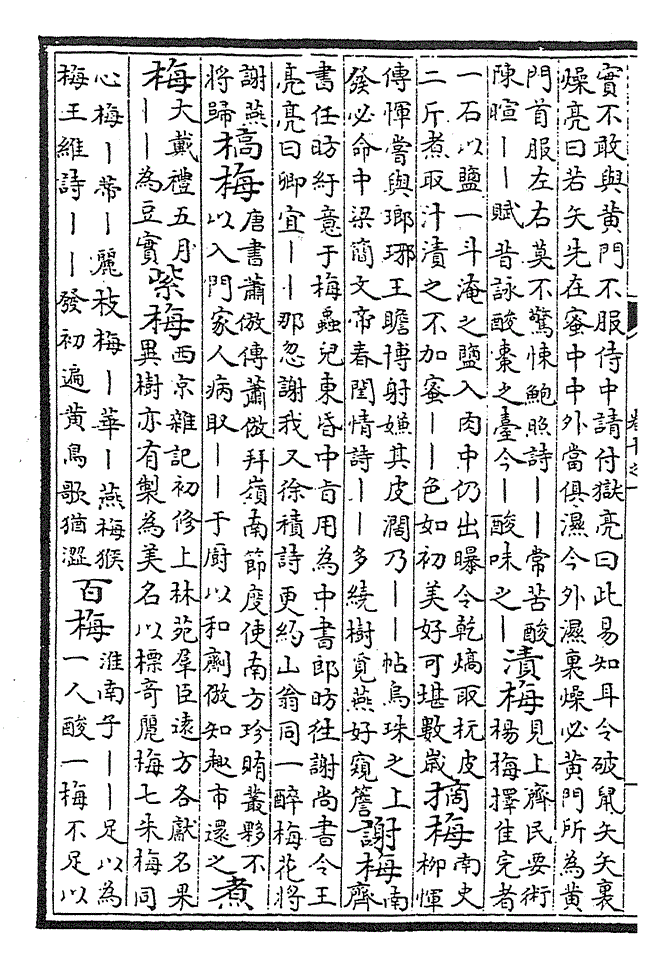 實不敢與黄門不服侍中請付獄亮曰此易知耳令破鼠矢矢裏
燥亮曰若矢先在蜜中中外當俱濕今外濕裏燥必黄門所為黄
門首服左右莫不驚悚鮑照詩丨丨常苦酸
陳暄丨丨賦昔詠酸棗之臺今丨酸味之丨
漬梅
見上齊民要術
楊梅擇佳完者
一石以鹽一斗淹之鹽入肉中仍出曝令乾熇取杬皮
二斤煮取汁漬之不加蜜丨丨色如初美好可堪數歲
摘梅
南史
柳惲
傳惲嘗與瑯琊王瞻博射嫌其皮濶乃丨丨帖烏珠之上
發必命中梁簡文帝春閨情詩丨丨多繞樹覓燕好窺簷
謝梅
南
齊
書任昉紆意于梅蟲兒東昏中旨用為中書郎昉往謝尚書令王
亮亮曰卿宜丨丨那忽謝我又徐積詩更約山翁同一醉梅花將
謝燕
將歸
槁梅
唐書蕭倣傳蕭倣拜嶺南節度使南方珍賄叢夥不
以入門家人病取丨丨于廚以和劑倣知趣市還之
煮
梅
大戴禮五月
丨丨為豆實
紫梅
西京雜記初修上林苑羣臣遠方各獻名果
異樹亦有製為美名以標奇麗梅七朱梅同
心梅丨蔕丨麗枝梅丨華丨燕梅猴
梅王維詩丨丨發初遍黄鳥歌猶澀
百梅
淮南子丨丨足以為
一人酸一梅不足以
卷十之一